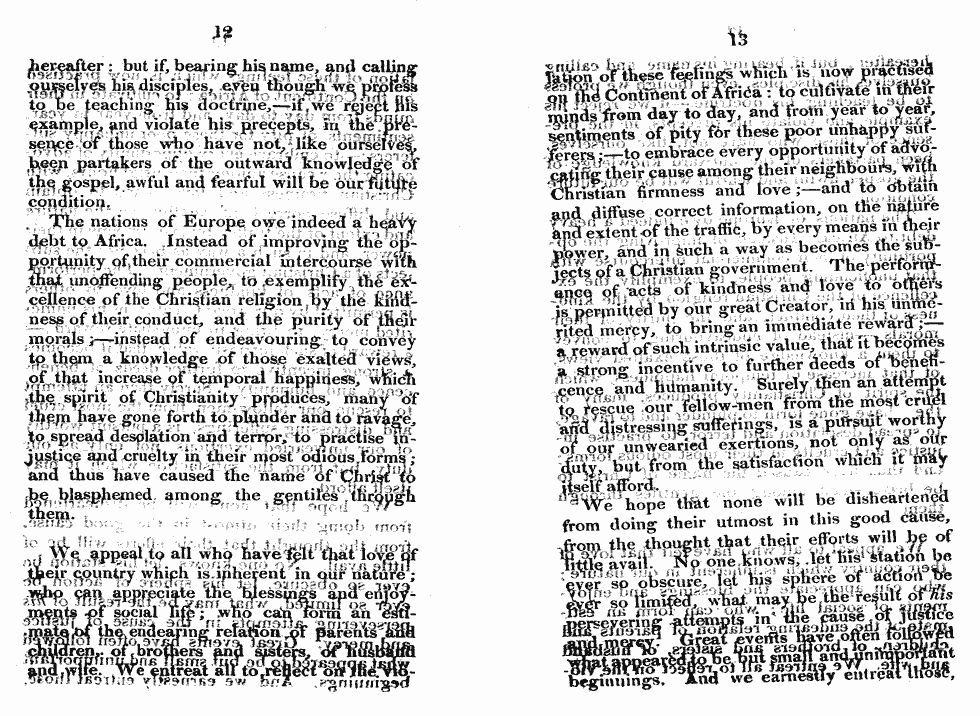 12
hereafter : but if, bearing his name, and calling
ourselves his disciples, even though we profess
to be teaching his doctrine,—if we reject his
example, and violate his precepts, in the pre-
sence of those who have not, like ourselves,
been partakers of the outward knowledge of
the gospel, awful and fearful will be our future
condition.
The nations of Europe owe indeed a heavy
debt to Africa. Instead of improving the op-
portunity of their commercial intercourse with
that unoffending people, to exemplify the ex-
cellence of the Christian religion by the kind-
ness of their conduct, and the purity of their
morals ;—instead of endeavouring to convey
to them a knowledge of those exalted views,
of that increase of temporal happiness, which
the spirit of Christianity produces, many of
them have gone forth to plunder and to ravage,
to spread desolation and terror, to practise in-
justice and cruelty in their most odious forms ;
and thus have caused the name of Christ to
be blasphemed among the gentiles through
them.
We appeal to all who have felt that love of
their country which is inherent in our nature ;
who can appreciate the blessings and enjoy-
ments of social life ; who can form an esti-
mate of the endearing relation of parents and
children, of brothers and sisters, of husband
and wife. We entreat all to reflect on the vio-
13
lation of these feelings which is now practised
on the Continent of Africa : to cultivate in their
minds from day to day, and from year to year,
sentiments of pity for these poor unhappy suf-
ferers ;—to embrace every opportunity of advo-
cating their cause among their neighbours, with
Christian firmness and love ;—and to obtain
and diffuse correct information, on the nature
and extent of the traffic, by every means in their
power, and in such a way as becomes the sub-
jects of a Christian government. The perform-
ance of acts of kindness and love to others
is permitted by our great Creator, in his unme-
rited mercy, to bring an immediate reward ;—
a reward of such intrinsic value, that it becomes
a strong incentive to further deeds of benefi-
cence and humanity. Surely then an attempt
to rescue our fellow-men from the most cruel
and distressing sufferings, is a pursuit worthy
of our unwearied exertions, not only as our
duty, but from the satisfaction which it may
itself afford.
We hope that none will be disheartened
from doing their utmost in this good cause,
from the thought that their efforts will be of
little avail. No one knows, let his station be
ever so obscure, let his sphere of action be
ever so limited, what may be the result of his
persevering attempts in the cause of justice
and mercy. Great events have often followed
what appeared to be but small and unimportant
beginnings. And we earnestly entreat those,